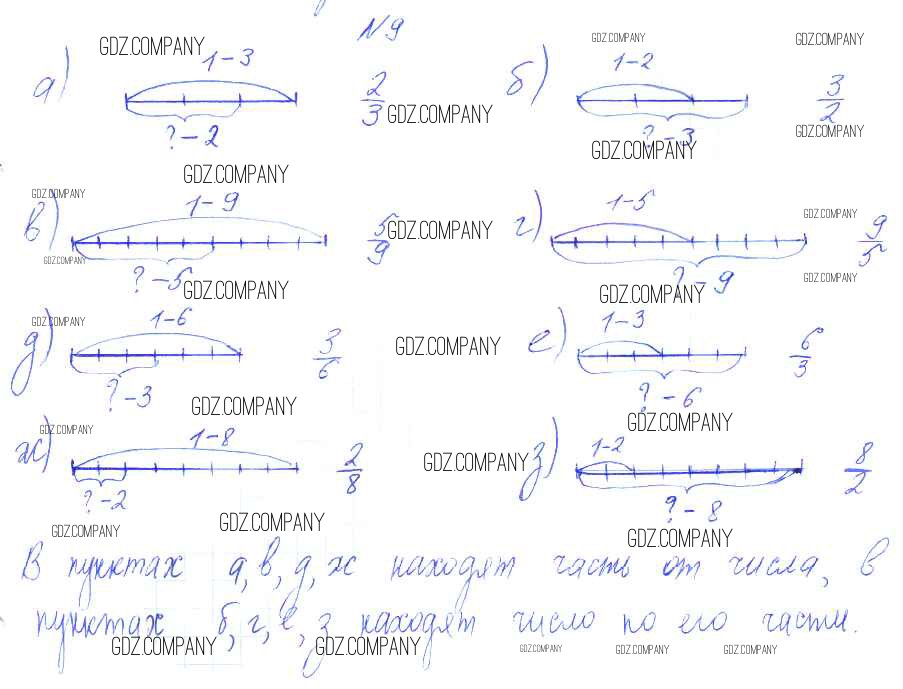 N9
GDZ.COMPANY GDZ.COMPANY GDZ.COMPANY
а) 1-3 2/3 б) 1-2 3/2
GDZ.COMPANY GDZ.COMPANY
?-2 ?-3
GDZ.COMPANY GDZ.COMPANY
GDZ.COMPANY
в) 1-9 5/9 г) 1-5 9/5
GDZ.COMPANY GDZ.COMPANY
GDZ.COMPANY GDZ.COMPANY
?-5 ?-9
GDZ.COMPANY GDZ.COMPANY
GDZ.COMPANY
д) 1-6 3/6 е) 1-3 6/3
GDZ.COMPANY
?-3 ?-6
GDZ.COMPANY GDZ.COMPANY
GDZ.COMPANY
ж) 1-8 2/8 з) 1-2 8/2
GDZ.COMPANY
?-2 ?-8
GDZ.COMPANY GDZ.COMPANY GDZ.COMPANY
В пунктах а, в, д, ж находят часть от числа, в
пунктах б, г, е, з находят число по его части.
GDZ.COMPANY GDZ.COMPANY GDZ.COMPANY GDZ.COMPANY GDZ.COMPANY